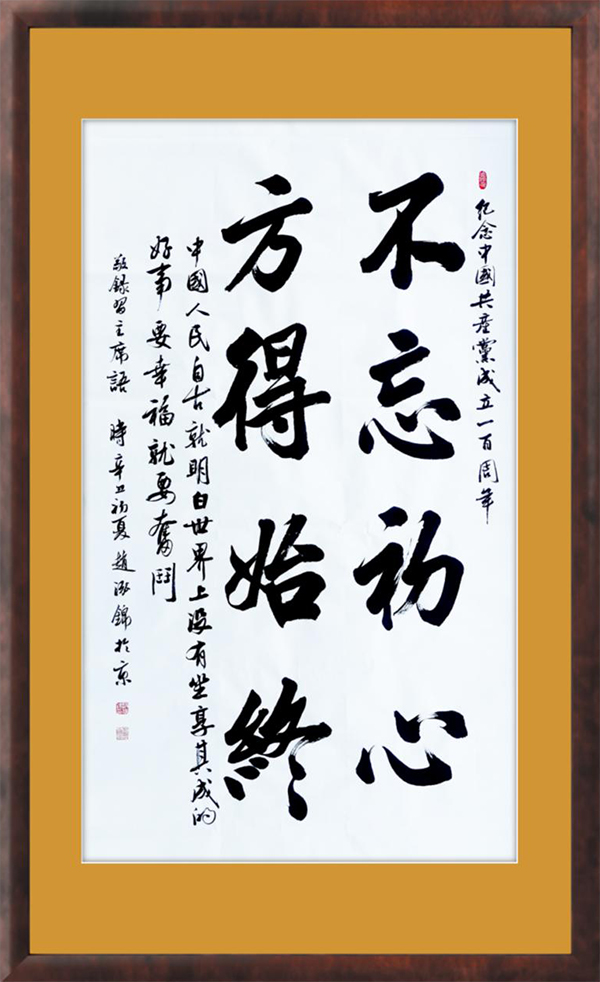 纪念中國共產黨成立一百周年
不忘初心
方得始終
中國人民自古就明白世界上没有坐享其成的
好事要幸福就要奮鬥
敬録習主席語 時辛丑初夏 趙 錦於京